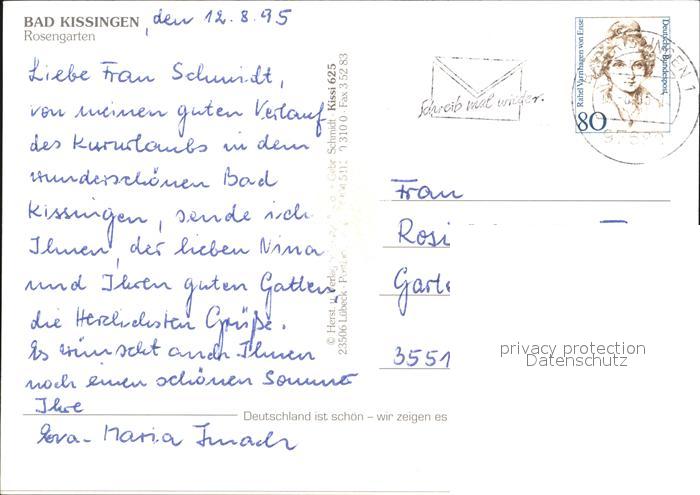 BAD KISSINGEN, den 12.8.95
Rosengarten
Liebe Frau Schmidt,
von meinen guten Verlauf
des Kururlaubs in dem
wunderschönen Bad
Kissingen, sende ich
Ihnen, der lieben Nina
und Ihren guten Gatten,
die Herzlichsten Grüße.
Es wünscht auch Ihnen
noch einen schönen Sommer
Ihre
Eva-Maria
© Herst. u. Verlag Gebr. Schmidt · Kissi 625
23506 Lübeck · Fax 3 52 83
Schreib mal wieder.
Rahel Varnhagen von Ense
Deutsche Bundespost
80
Frau
Rosi
Gart
3551
privacy protection
Datenschutz
Deutschland ist schön – wir zeigen es